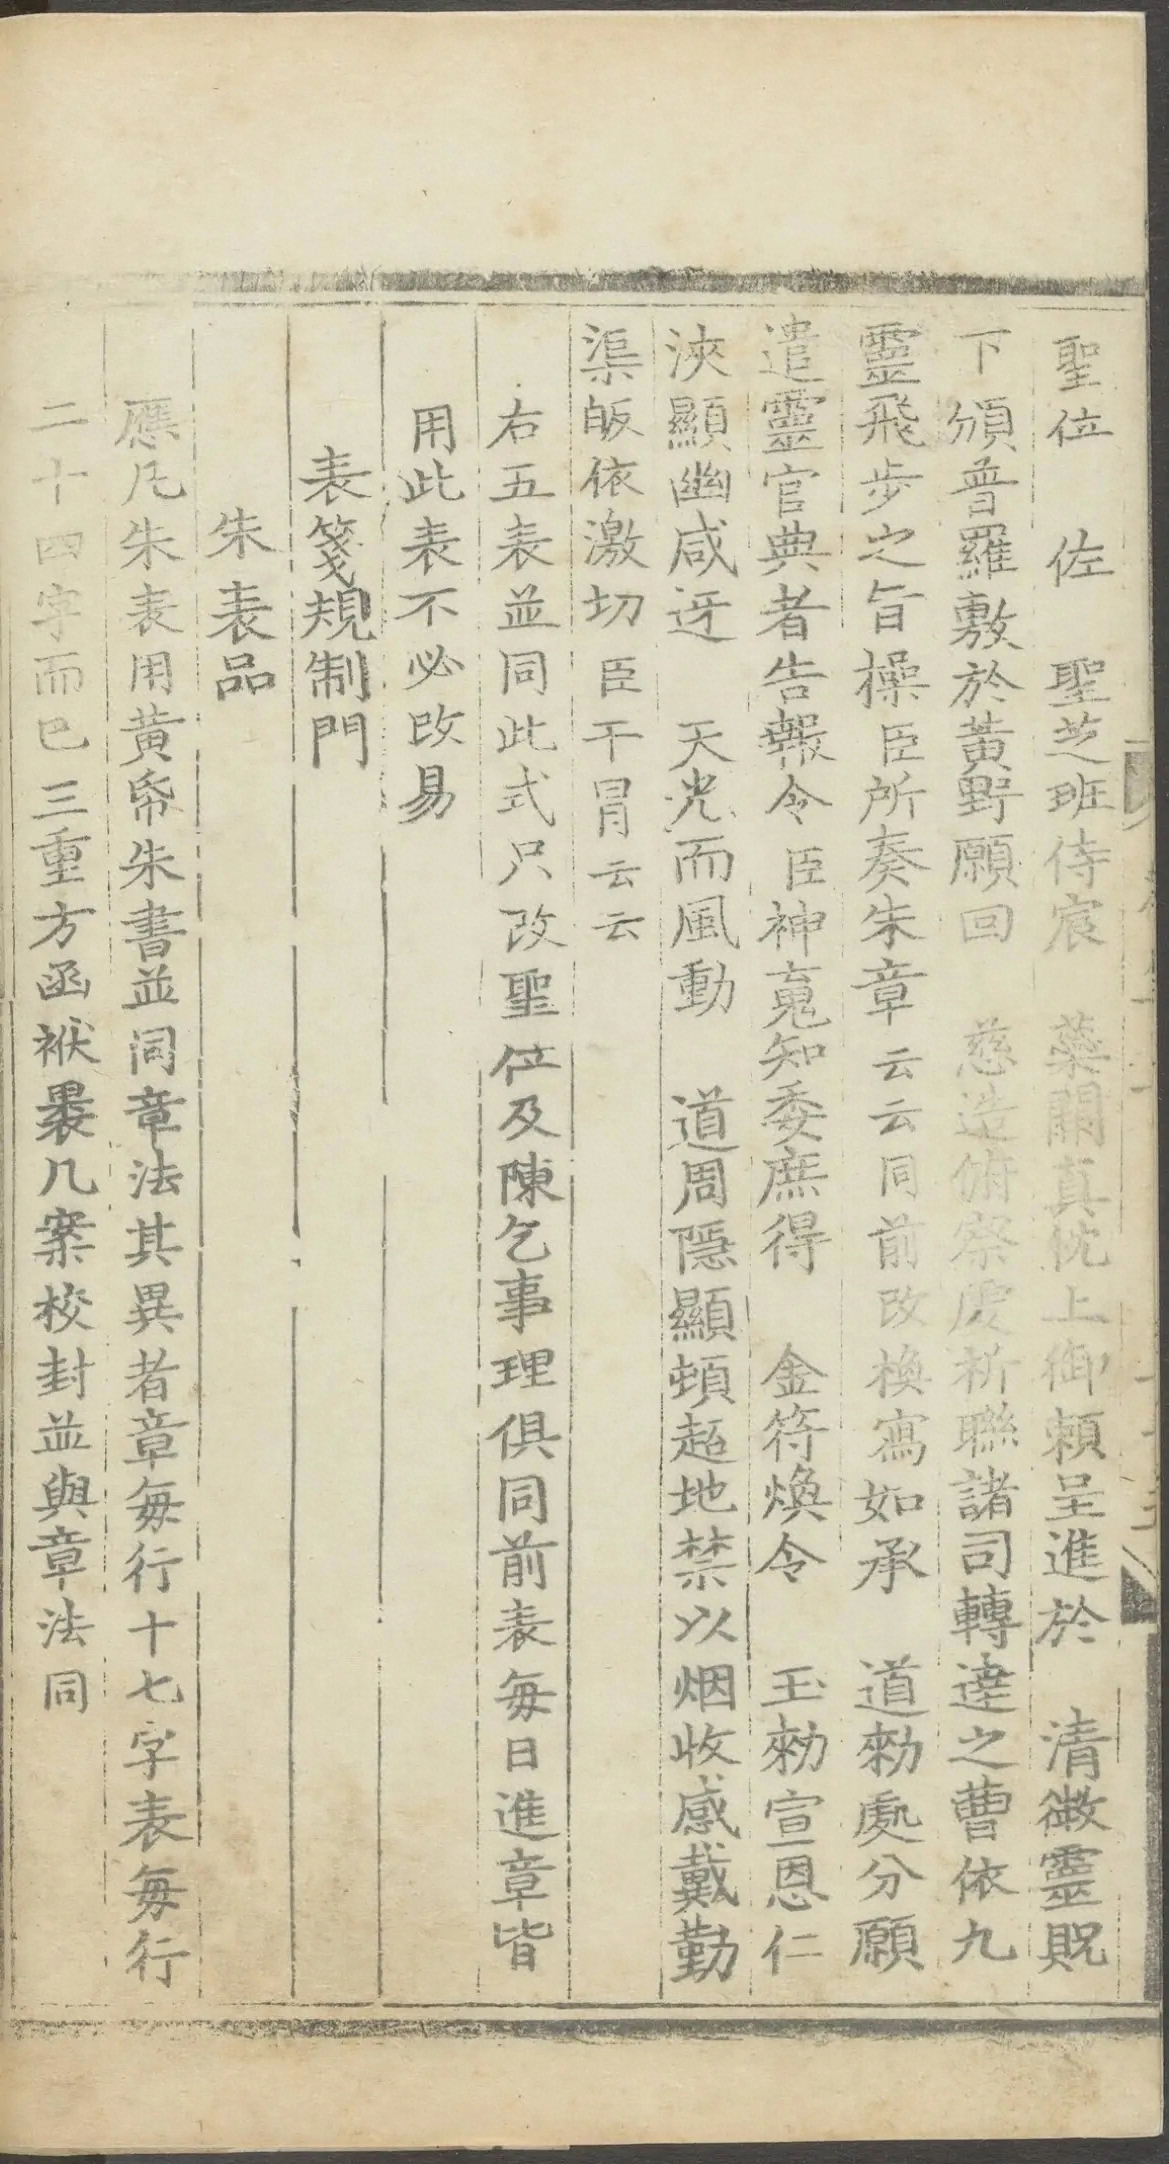 聖位　佐　聖芝班侍宸　蘂關真忱上御頼呈進於　清微靈貺
下頒普羅敷於黃野願回　慈造俯察虔祈聯諸司轉達之曹依九
靈飛步之旨操臣所奏朱章云云同前改換寫如承　道勑處分願
遣靈官典者告報令臣神䰟知委庶得　金符煥令　玉勑宣恩仁
浹顯幽咸迓　天光而風動　道周隱顯頓超地禁以烟收感戴勤
渠皈依激切臣干冐云云
右五表並同此式只改聖位及陳乞事理俱同前表每日進章皆
用此表不必改易
表箋規制門
朱表品
應凡朱表用黃帋朱書並同章法其異者章每行十七字表每行
二十四字而巳三重方函袱裹几案校封並與章法同